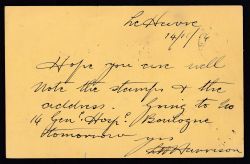 Le Havre
14/11/14
Hope you are well
Note the stamps & the
address. Going to
14 Gen. Hosp. Boulogne
tomorrow yrs
Harrison